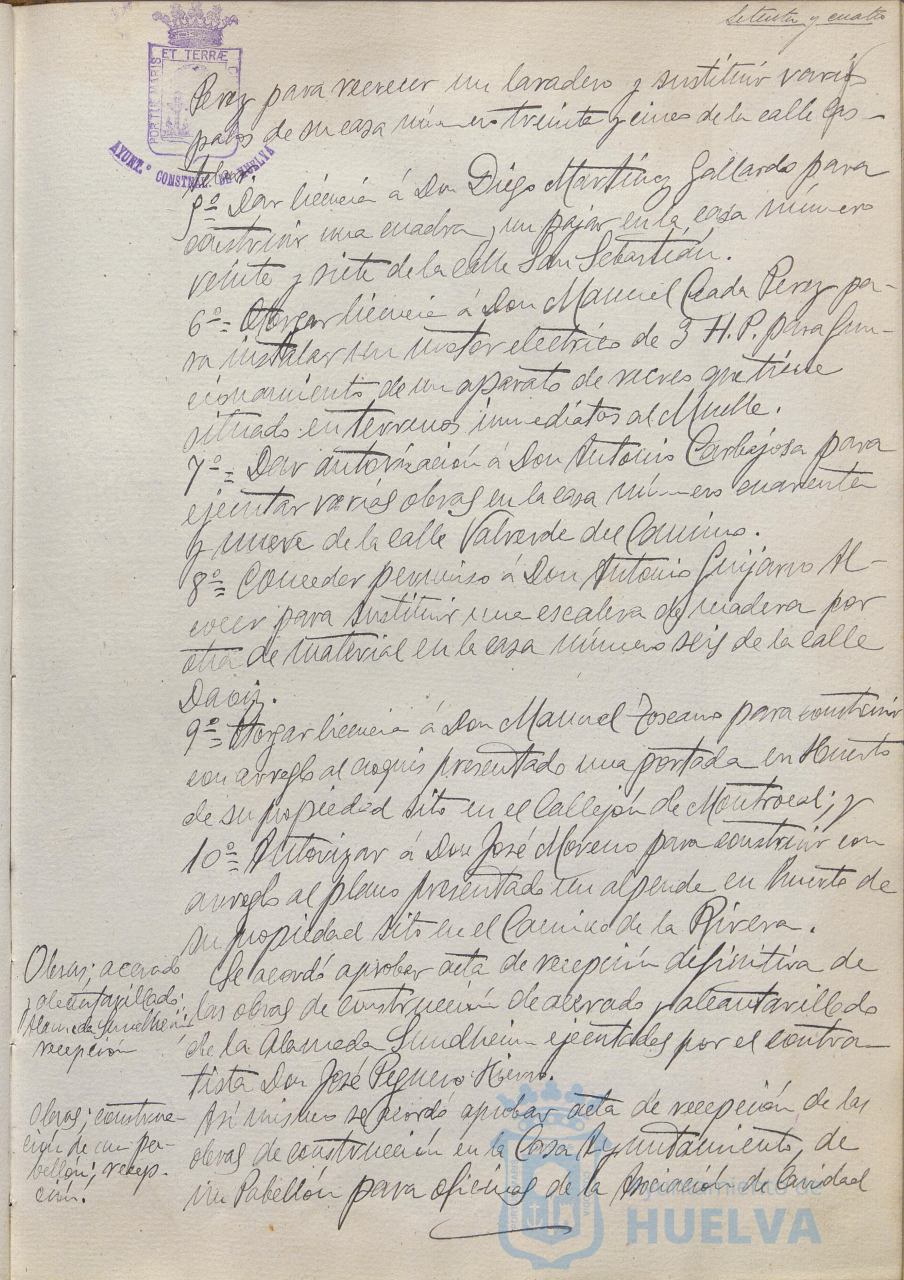 Setenta y cuatro
PORTUS MARIS ET TERRÆ
AYUNT.º CONSTNAL. DE HUELVA
Perez para recrecer un lavadero y sustituir varios
palos de su casa número treinta y cinco de la calle Cas-
telar.
5º Dar licencia á Don Diego Martínez Gallardo para
construir una cuadra y un pajar en la casa número
veinte y siete de la calle San Sebastián.
6º = Otorgar licencia á Don Manuel Perez pa-
ra instalar un motor electrico de 3 H.P. para fun-
cionamiento de un aparato de recreo que tiene
situado en terrenos inmediatos al Muelle.
7º = Dar autorización á Don Antonio Carbajosa para
ejecutar varias obras en la casa número cuarenta
y nueve de la calle Valverde del Camino.
8º = Conceder permiso á Don Antonio Guijarro Al-
cocer para sustituir una escalera de madera por
otra de material en la casa número seis de la calle
Daoiz.
9º = Otorgar licencia á Don Manuel Toscano para construir
con arreglo al croquis presentado una portada en Huerto
de su propiedad sito en el Callejón de Montrocal; y
10º = Autorizar á Don José Moreno para construir con
arreglo al plano presentado un alpende en huerto de
su propiedad sito en el Camino de la Rivera.
Obras; acerado
y alcantarillado;
Alameda Sundheim;
recepción
Se acordó aprobar acta de recepción definitiva de
las obras de construcción de acerado y alcantarillado
de la Alameda Sundheim ejecutadas por el contra-
tista Don José Peguero Hierro.
Obras; construc-
ción de un pa-
bellón; recep-
ción.
Así mismo se acordó aprobar acta de recepción, de las
obras de construcción en la Casa Ayuntamiento, de
un Pabellón para oficinas de la Asociación de Caridad
Ayuntamiento de
HUELVA